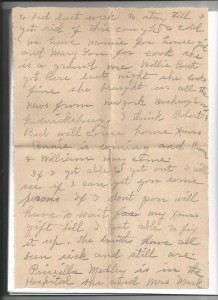 to bed last week to stay till I
get rid of this cough & cold
we have Minnie for house
and Mary Jane for cook she
is a grand one Nellie Burt
got here last night she looks
fine she brought us all the
news from New York Washington
Fredericksburg. I think Robert &
Burt will come home Xmas
Annie is coming and
& William mar stone
If I get able to get out I will
see if I can get you some
If I don't you will
have to wait for my Xmas
gift till I get able to fix
it up. The Smiths have all
been sick and still are
Priscilla Medley is in the
Hospital she and Mrs Mark